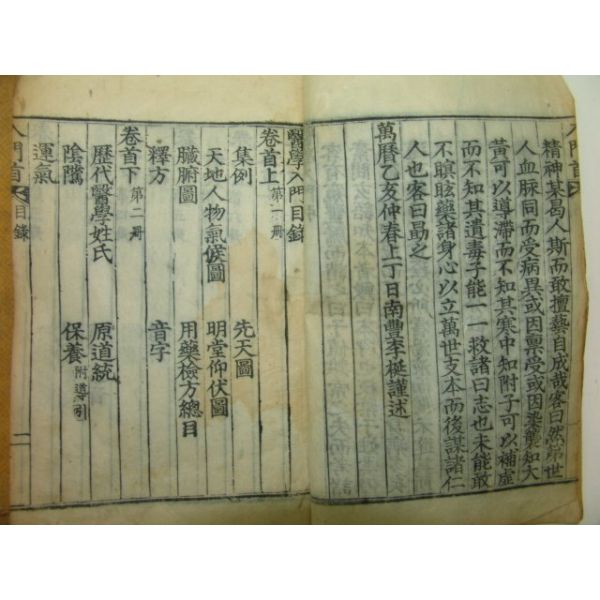 精神某曷人斯而敢擅藝自成哉客曰然第世
人血脉同而受病異或因禀受或因染襲知大
黃可以導滯而不知其寒中知附子可以補虛
而不知其遺毒子能一一救諸曰志也未能敢
不瞑眩藥諸身心以立萬世支本而後謀諸仁
人也客曰勗之
萬曆乙亥仲春上丁日南豐李梴謹述
醫學入門目錄
卷首上 第一冊
集例 先天圖
天地人物氣候圖 明堂仰伏圖
臟腑圖 用藥檢方總目
釋方 音字
卷首下 第二冊
歷代醫學姓氏 原道統
陰騭 保養 附導引
運氣
入門首 目錄 一